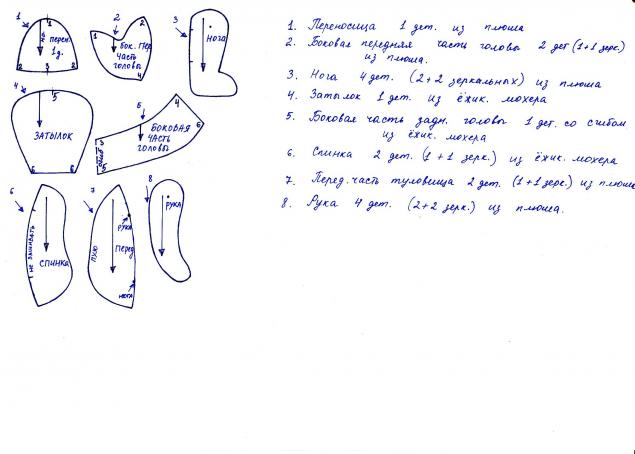 1
1
перен.
1д.
2 3 2
2
1
2
Бок. пер.
часть
головы
4
3
Нога
4
5
ЗАТЫЛОК
6 6
5
4
БОКОВАЯ
ЧАСТЬ
ГОЛОВЫ
6
3
сгиб
5
6
не зашивать
СПИНКА
7
пузо
рука
перед
нога
8
РУКА
1. Переносица 1 дет. из плюша
2. Боковая передняя часть головы 2 дет (1+1 зерк.)
из плюша.
3. Нога 4 дет. (2+2 зеркальных) из плюша
4. Затылок 1 дет. из ёжик. мохера
5. Боковая часть задн. головы 1 дет. со сгибом
из ёжик. мохера
6. Спинка 2 дет. (1+1 зерк.) из ёжик. мохера
7. Перед. часть туловища 2 дет. (1+1 зерк.) из плюша
8. Рука 4 дет. (2+2 зерк.) из плюша.